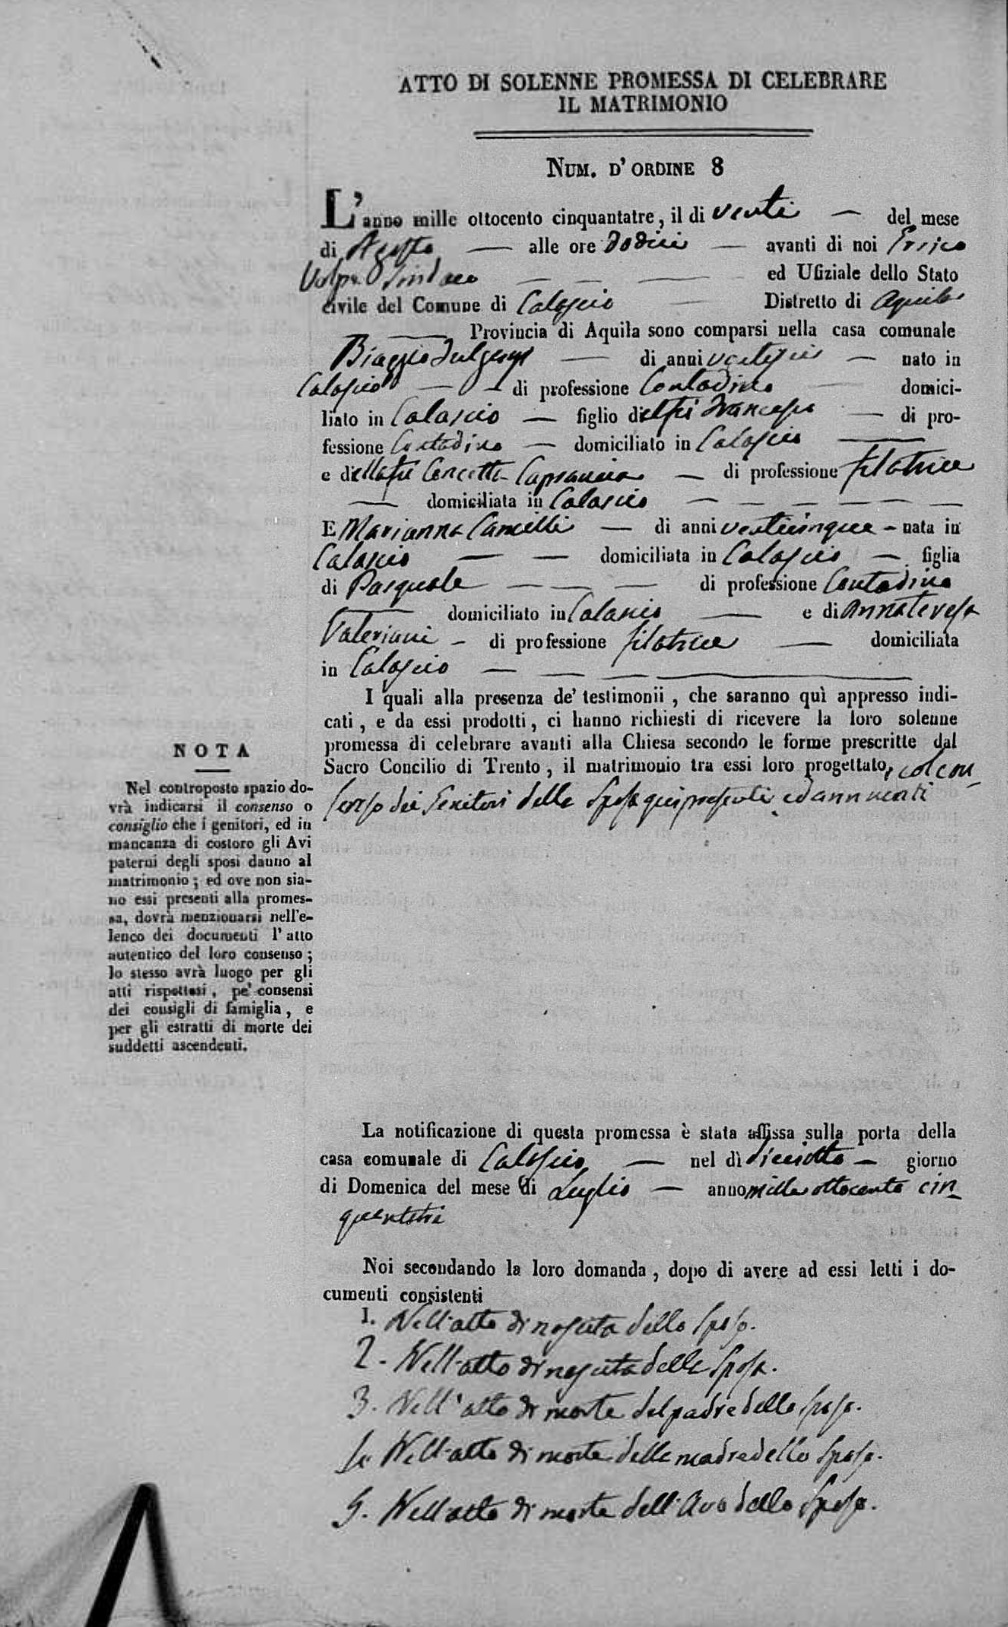 ATTO DI SOLENNE PROMESSA DI CELEBRARE
IL MATRIMONIO
NUM. D'ORDINE 8
L'anno mille ottocento cinquantatre, il di venti — del mese
di Agosto — alle ore dodici — avanti di noi Errico
Volpe Sindaco — — — ed Ufiziale dello Stato
civile del Comune di Calascio — Distretto di Aquila
— Provincia di Aquila sono comparsi nella casa comunale
Biaggio — di anni ventisei — nato in
Calascio — — di professione Contadino — domici-
liato in Calascio — figlio del fu Francesco — di pro-
fessione Contadino — domiciliato in Calascio —
e della fu Concetta — di professione filatrice
— domiciliata in Calascio — — — — —
E Marianna Camilli — di anni venticinque - nata in
Calascio — — domiciliata in Calascio — figlia
di Pasquale — — — di professione Contadino
— domiciliato in Calascio — e di Annateresa
Valeriani - di professione filatrice — domiciliata
in Calascio — — — —
I quali alla presenza de' testimonii, che saranno quì appresso indi-
cati, e da essi prodotti, ci hanno richiesti di ricevere la loro solenne
promessa di celebrare avanti alla Chiesa secondo le forme prescritte dal
Sacro Concilio di Trento, il matrimonio tra essi loro progettato, col con-
senso dei Genitori della Sposa qui presenti ed annuenti
NOTA
Nel controposto spazio do-
vrà indicarsi il consenso o
consiglio che i genitori, ed in
mancanza di costoro gli Avi
paterni degli sposi danno al
matrimonio; ed ove non sia-
no essi presenti alla promes-
sa, dovrà menzionarsi nell'e-
lenco dei documenti l'atto
autentico del loro consenso;
lo stesso avrà luogo per gli
atti rispettosi, pe' consensi
dei consigli di famiglia, e
per gli estratti di morte dei
suddetti ascendenti.
La notificazione di questa promessa è stata affissa sulla porta della
casa comunale di Calascio — nel dì diciotto — giorno
di Domenica del mese di Luglio — anno mille ottocento cin-
quantatrè
Noi secondando la loro domanda, dopo di avere ad essi letti i do-
cumenti consistenti
1. Nell'atto di nascita dello Sposo.
2. Nell'atto di nascita della Sposa.
3. Nell'atto di morte del padre dello Sposo.
4. Nell'atto di morte della madre dello Sposo.
5. Nell'atto di morte dell'Avo dello Sposo.